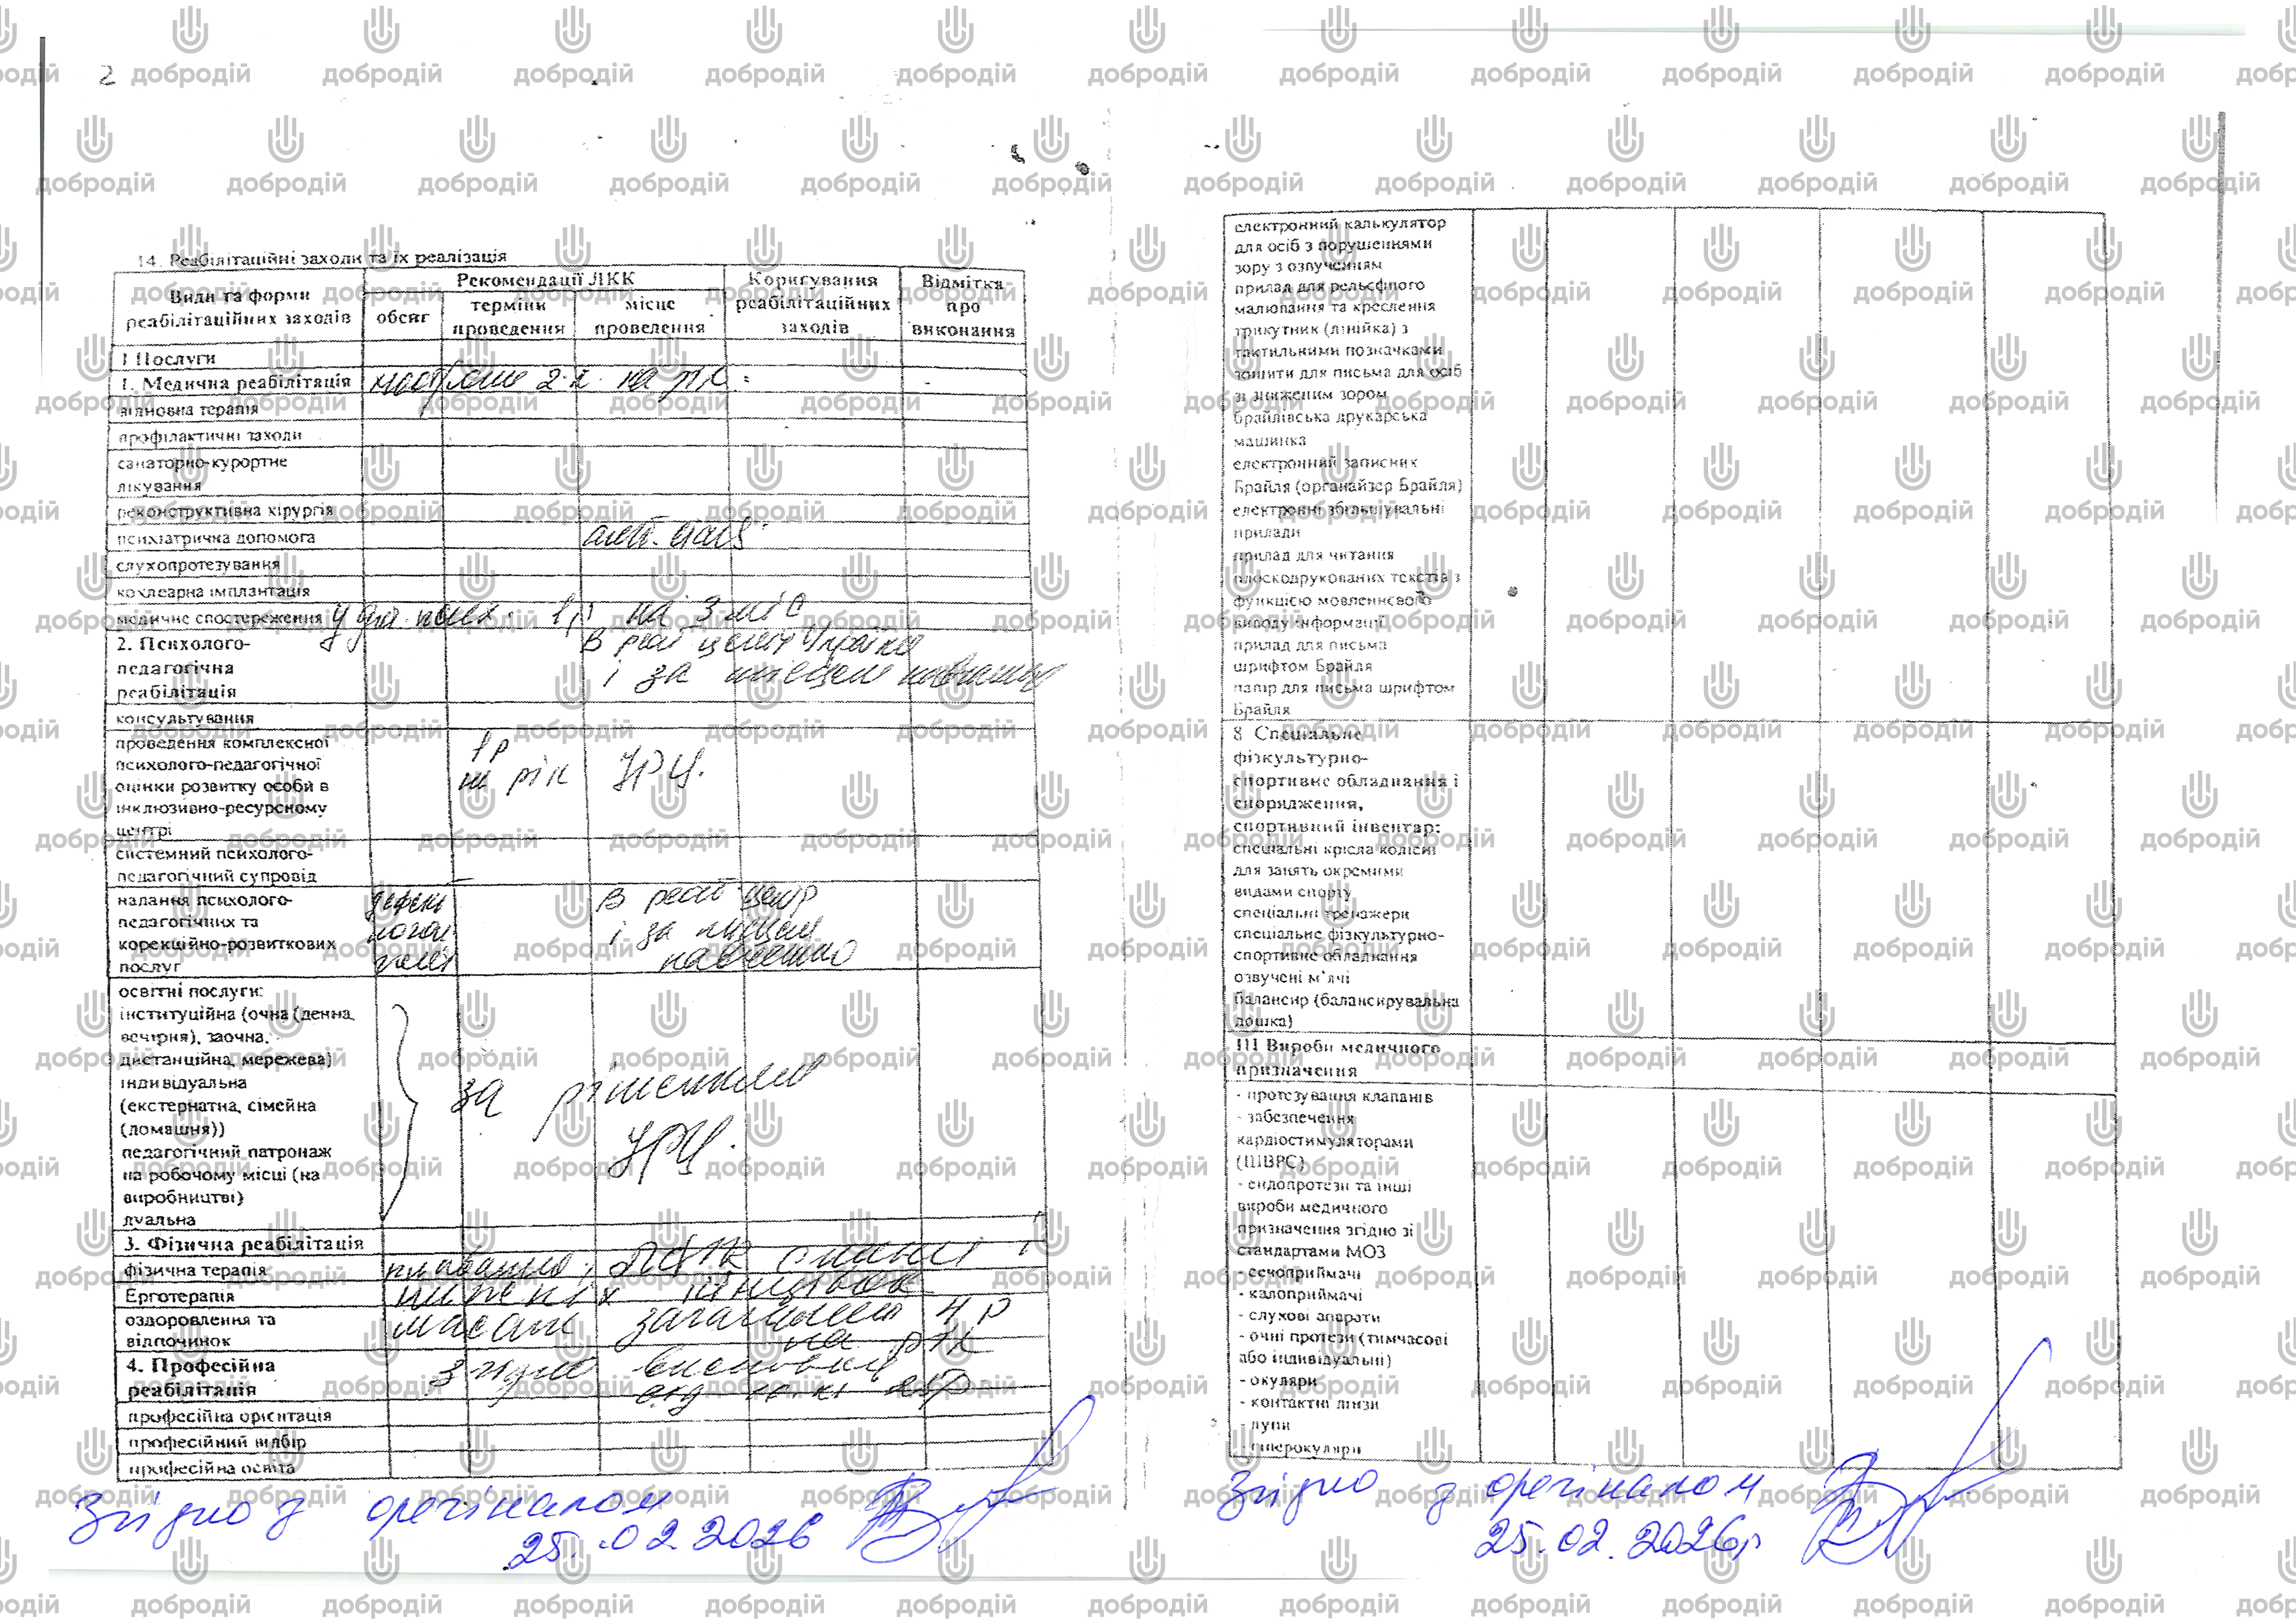 2
14. Реабілітаційні заходи та їх реалізація
Види та форми реабілітаційних заходів
Рекомендації ЛКК
обсяг
терміни проведення
місце проведення
Коригування реабілітаційних заходів
Відмітка про виконання
І Послуги
1. Медична реабілітація 2 р. на рік
відновна терапія
профілактичні заходи
санаторно-курортне
лікування
реконструктивна хірургія
психіатрична допомога
слухопротезування
кохлеарна імплантація
медичне спостереження у 1р на 3 міс
2. Психолого-
педагогічна
реабілітація
В реаб центр України
і за місцем навчання
консультування
проведення комплексної
психолого-педагогічної
оцінки розвитку особи в
інклюзивно-ресурсному
центрі
1р
на рік
ІРЦ.
системний психолого-
педагогічний супровід
надання психолого-
педагогічних та
корекційно-розвиткових
послуг
В реаб центр
і за місцем
навчання
освітні послуги:
інституційна (очна (денна,
вечірня), заочна,
дистанційна, мережева)
індивідуальна
(екстернатна, сімейна
(домашня))
педагогічний патронаж
на робочому місці (на
виробництві)
дуальна
за рішенням
ІРЦ.
3. Фізична реабілітація
фізична терапія плавання,
Ерготерапія нижніх кінцівок
оздоровлення та
відпочинок
масаж загальний 4 р
на рік
4. Професійна
реабілітація
згідно висновку
професійна орієнтація
професійний відбір
професійна освіта
Згідно з оригіналом
25.02.2026
електронний калькулятор
для осіб з порушеннями
зору з озвученням
прилад для рельєфного
малювання та креслення
трикутник (лінійка) з
тактильними позначками
зошити для письма для осіб
зі зниженим зором
брайлівська друкарська
машинка
електронний записних
Брайля (органайзер Брайля)
електронні збільшувальні
прилади
прилад для читання
плоскодрукованих текстів з
функцією мовленнєвого
виводу інформації
прилад для письма
шрифтом Брайля
папір для письма шрифтом
Брайля
8 Спеціальне
фізкультурно-
спортивне обладнання і
спорядження,
спортивний інвентар:
спеціальні крісла колісні
для занять окремими
видами спорту
спеціальні тренажери
спеціальне фізкультурно-
спортивне обладнання
озвучені м'ячі
балансир (балансирувальна
дошка)
ІІІ Вироби медичного
призначення
- протезування клапанів
- забезпечення
кардіостимуляторами
(ШВРС)
- ендопротези та інші
вироби медичного
призначення згідно зі
стандартами МОЗ
- сечоприймачі
- калоприймачі
- слухові апарати
- очні протези (тимчасові
або індивідуальні)
- окуляри
- контактні лінзи
- лупи
- гіперокуляри
Згідно з оригіналом
25.02.2026р
добродій